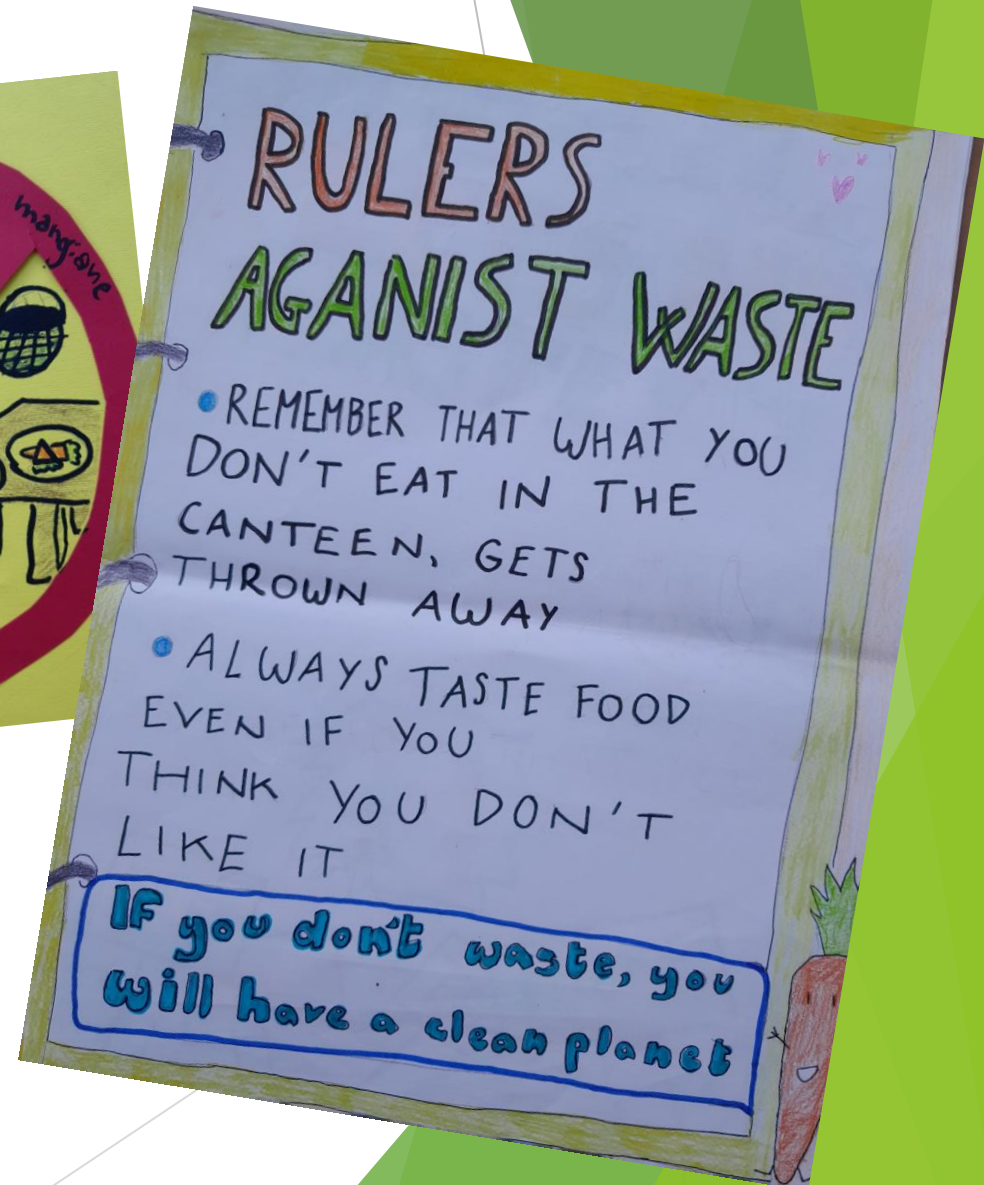 mangiare
RULERS
AGANIST WASTE
• REMEMBER THAT WHAT YOU
DON'T EAT IN THE
CANTEEN, GETS
THROWN AWAY
• ALWAYS TASTE FOOD
EVEN IF YOU
THINK YOU DON'T
LIKE IT
IF you don't waste, you
will have a clean planet